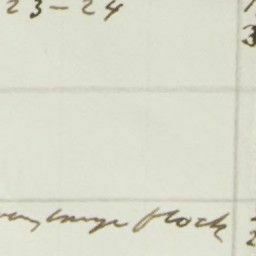 23-24
3
very large flock
2